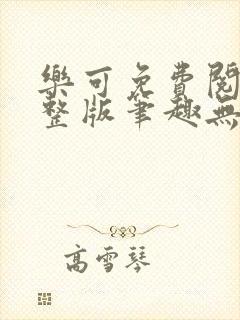 樂可免費閱
整版筆趣無
高雪琴